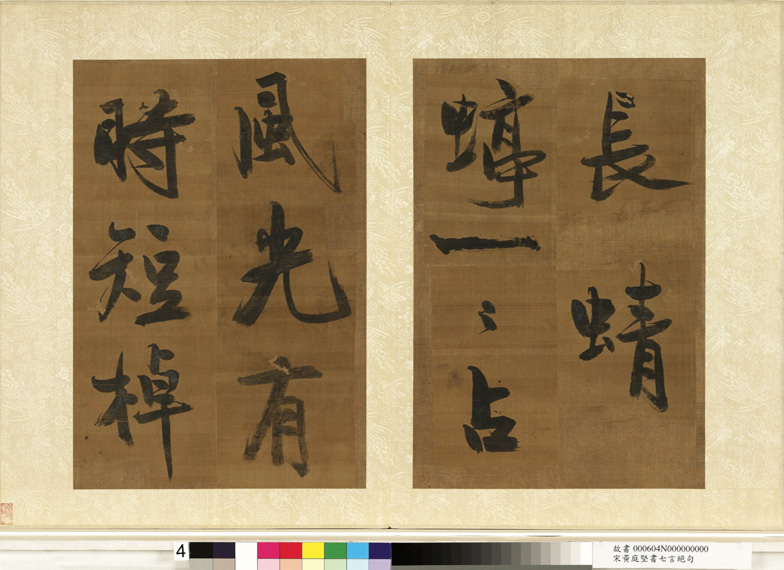 長蜻
蜓一〻占
風光有
時短棹
4
故書 000604N000000000
宋黃庭堅書七言絕句